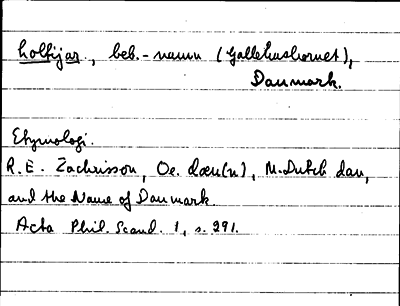 holtijaz., beb.-namn (Gallehushornet),
Danmark.
Etymologi.
R.E. Zachrisson, Oe. dæn(n), M.Dutch dan,
and the Name of Danmark.
Acta Phil. Scand. 1, s. 291.